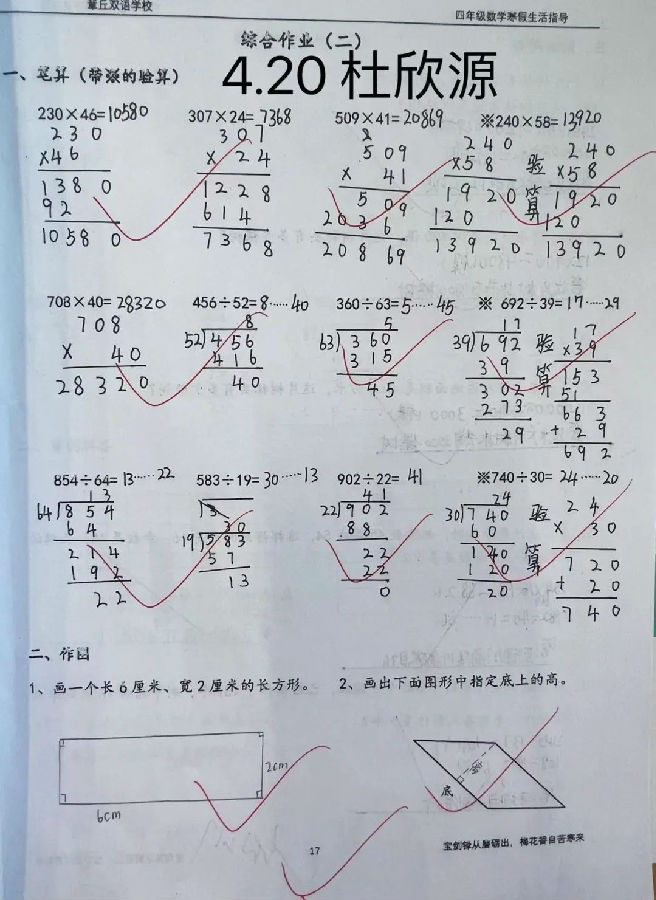 章丘双语学校
四年级数学寒假生活指导
综合作业（二）
一、笔算（带※的验算）
4.20 杜欣源
230×46=10580 307×24=7368 509×41=20869 ※240×58=13920
230 307 509 240 验算 240
×46 ×24 ×41 ×58 ×58
1380 1228 509 1920 1920
92 614 2036 120 120
10580 7368 20869 13920 13920
708×40=28320 456÷52=8……40 360÷63=5……45 ※ 692÷39=17……29
708 8 5 17 验算 17
×40 52 456 63 360 39 692 ×39
28320 416 315 39 153
40 45 302 51
273 663
29 +29
692
854÷64=13……22 583÷19=30……13 902÷22=41 ※740÷30=24……20
13 30 41 24 验算 24
64 854 19 583 22 902 30 740 ×30
64 57 88 60 720
214 13 22 140 +20
192 22 120 740
22 0 20
二、作图
1、画一个长6厘米、宽2厘米的长方形。 2、画出下面图形中指定底上的高。
2cm
高
底
6cm
17
宝剑锋从磨砺出，梅花香自苦寒来